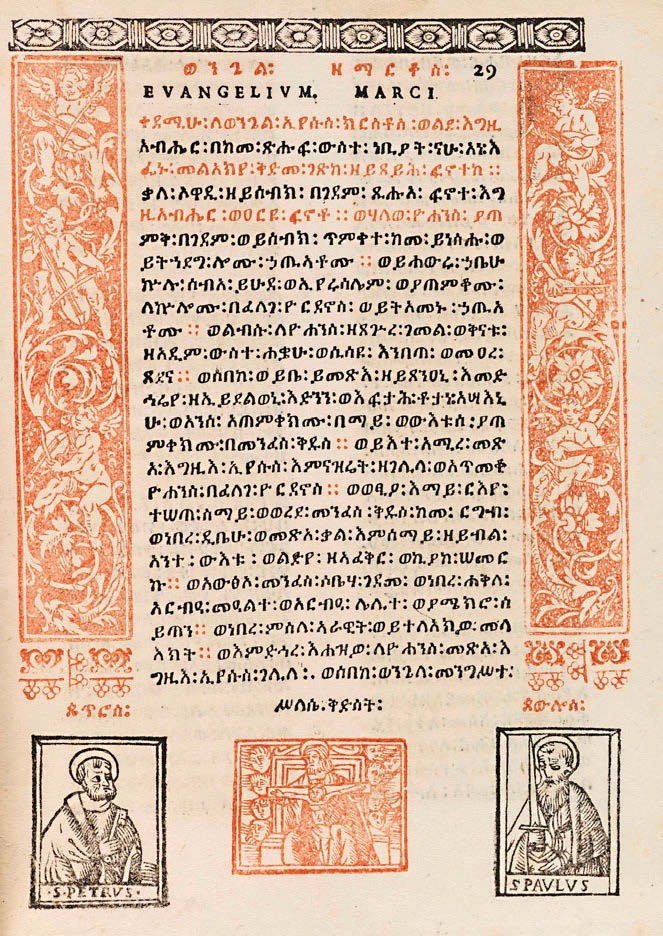 ወንጌል፡ ዘማርቆስ፡ 29
EVANGELIVM. MARCI.
ቀደማሁ፡ለወንጌል፡ኢየሱስ፡ክርስቶስ፡ወልደ፡እግዚ
አብሔር፡በከመ፡ጽሑፍ፡ውስተ፡ነቢያት፡ናሁ፡አነ፡እ
ፌኑ፡መልአክየ፡ቅድመ፡ገጽከ፡ዘይጸይሕ፡ፍኖተከ፡፡
ቃለ፡ዐዋዲ፡ዘይሰብክ፡በገዳም፡ጺሑአ፡ፍኖተ፡እግ
ዚአብሔር፡ወዐርዩ፡ፍኖቶ፡፡ወሃለወ፡ዮሐንስ፡ያጠ
ምቅ፡በገዳም፡ወይሰብክ፡ጥምቀተ፡ከመ፡ይነስሑ፡ወ
ይትኀደግ፡ሎሙ፡ኃጢአቶሙ፡፡ወይሐውሩ፡ኃቤሁ
ኵሉ፡ሰብአ፡ይሁዳ፡ወኢየሩሳሌም፡ወያጠምቆሙ፡
ለኵሎሙ፡በፈለገ፡ዮርዳኖስ፡ወይትአመኑ፡ኃጢአ
ቶሙ፡፡ወልብሱ፡ለዮሐንስ፡ዘጸጕረ፡ገመል፡ወቅናቱ፡
ዘአዲም፡ውስተ፡ሐቋሁ፡ወሲሳዩ፡አንበጣ፡ወመዐረ፡
ጸደና፡፡ወሰበከ፡ወይቤ፡ይመጽእ፡ዘይጸንዐኒ፡እምድ
ኅሬየ፡ዘኢይደልወኒ፡እድንን፡ወእፍታሕ፡ቶታነ፡አሣእኒ
ሁ፡ወአንሰ፡አጠምቀክሙ፡በማይ፡ወውእቱሰ፡ያጠ
ምቀክሙ፡በመንፈስ፡ቅዱስ፡፡ወይእተ፡አሚረ፡መጽ
አ፡እግዚእ፡ኢየሱስ፡እምናዝሬት፡ዘገሊላ፡ወአጥመቆ
ዮሐንስ፡በፈለገ፡ዮርዳኖስ፡፡ወወፂኦ፡እማይ፡ርእየ፡
ተሠጠ፡ሰማይ፡ወወረደ፡መንፈስ፡ቅዱስ፡ከመ፡ርግብ፡
ወነበረ፡ዲቤሁ፡ወመጽአ፡ቃል፡እምሰማይ፡ዘይብል፡
አንተ፡ውእቱ፡ወልድየ፡ዘአፈቅር፡ወኪያከ፡ሠመር
ኩ፡፡ወአውፅኦ፡መንፈስ፡ሶቤሃ፡ገዳመ፡ወነበረ፡ሐቅለ፡
አርብዓ፡መዓልተ፡ወአርብዓ፡ሌሊተ፡ወያሜክሮ፡ሰ
ይጣን፡፡ወነበረ፡ምስለ፡አራዊት፡ወይተለአክዎ፡መላ
እክት፡፡ወእምድኅረ፡እሐዝዎ፡ለዮሐንስ፡መጽአ፡እ
ግዚእ፡ኢየሱስ፡ገሊላ፡ወሰበከ፡ወንጌለ፡መንግሥተ፡
ሥላሴ.ቅድስት፡
ጴጥሮስ፡ ጳውሎስ፡
S.PETRVS. S PAVLVS